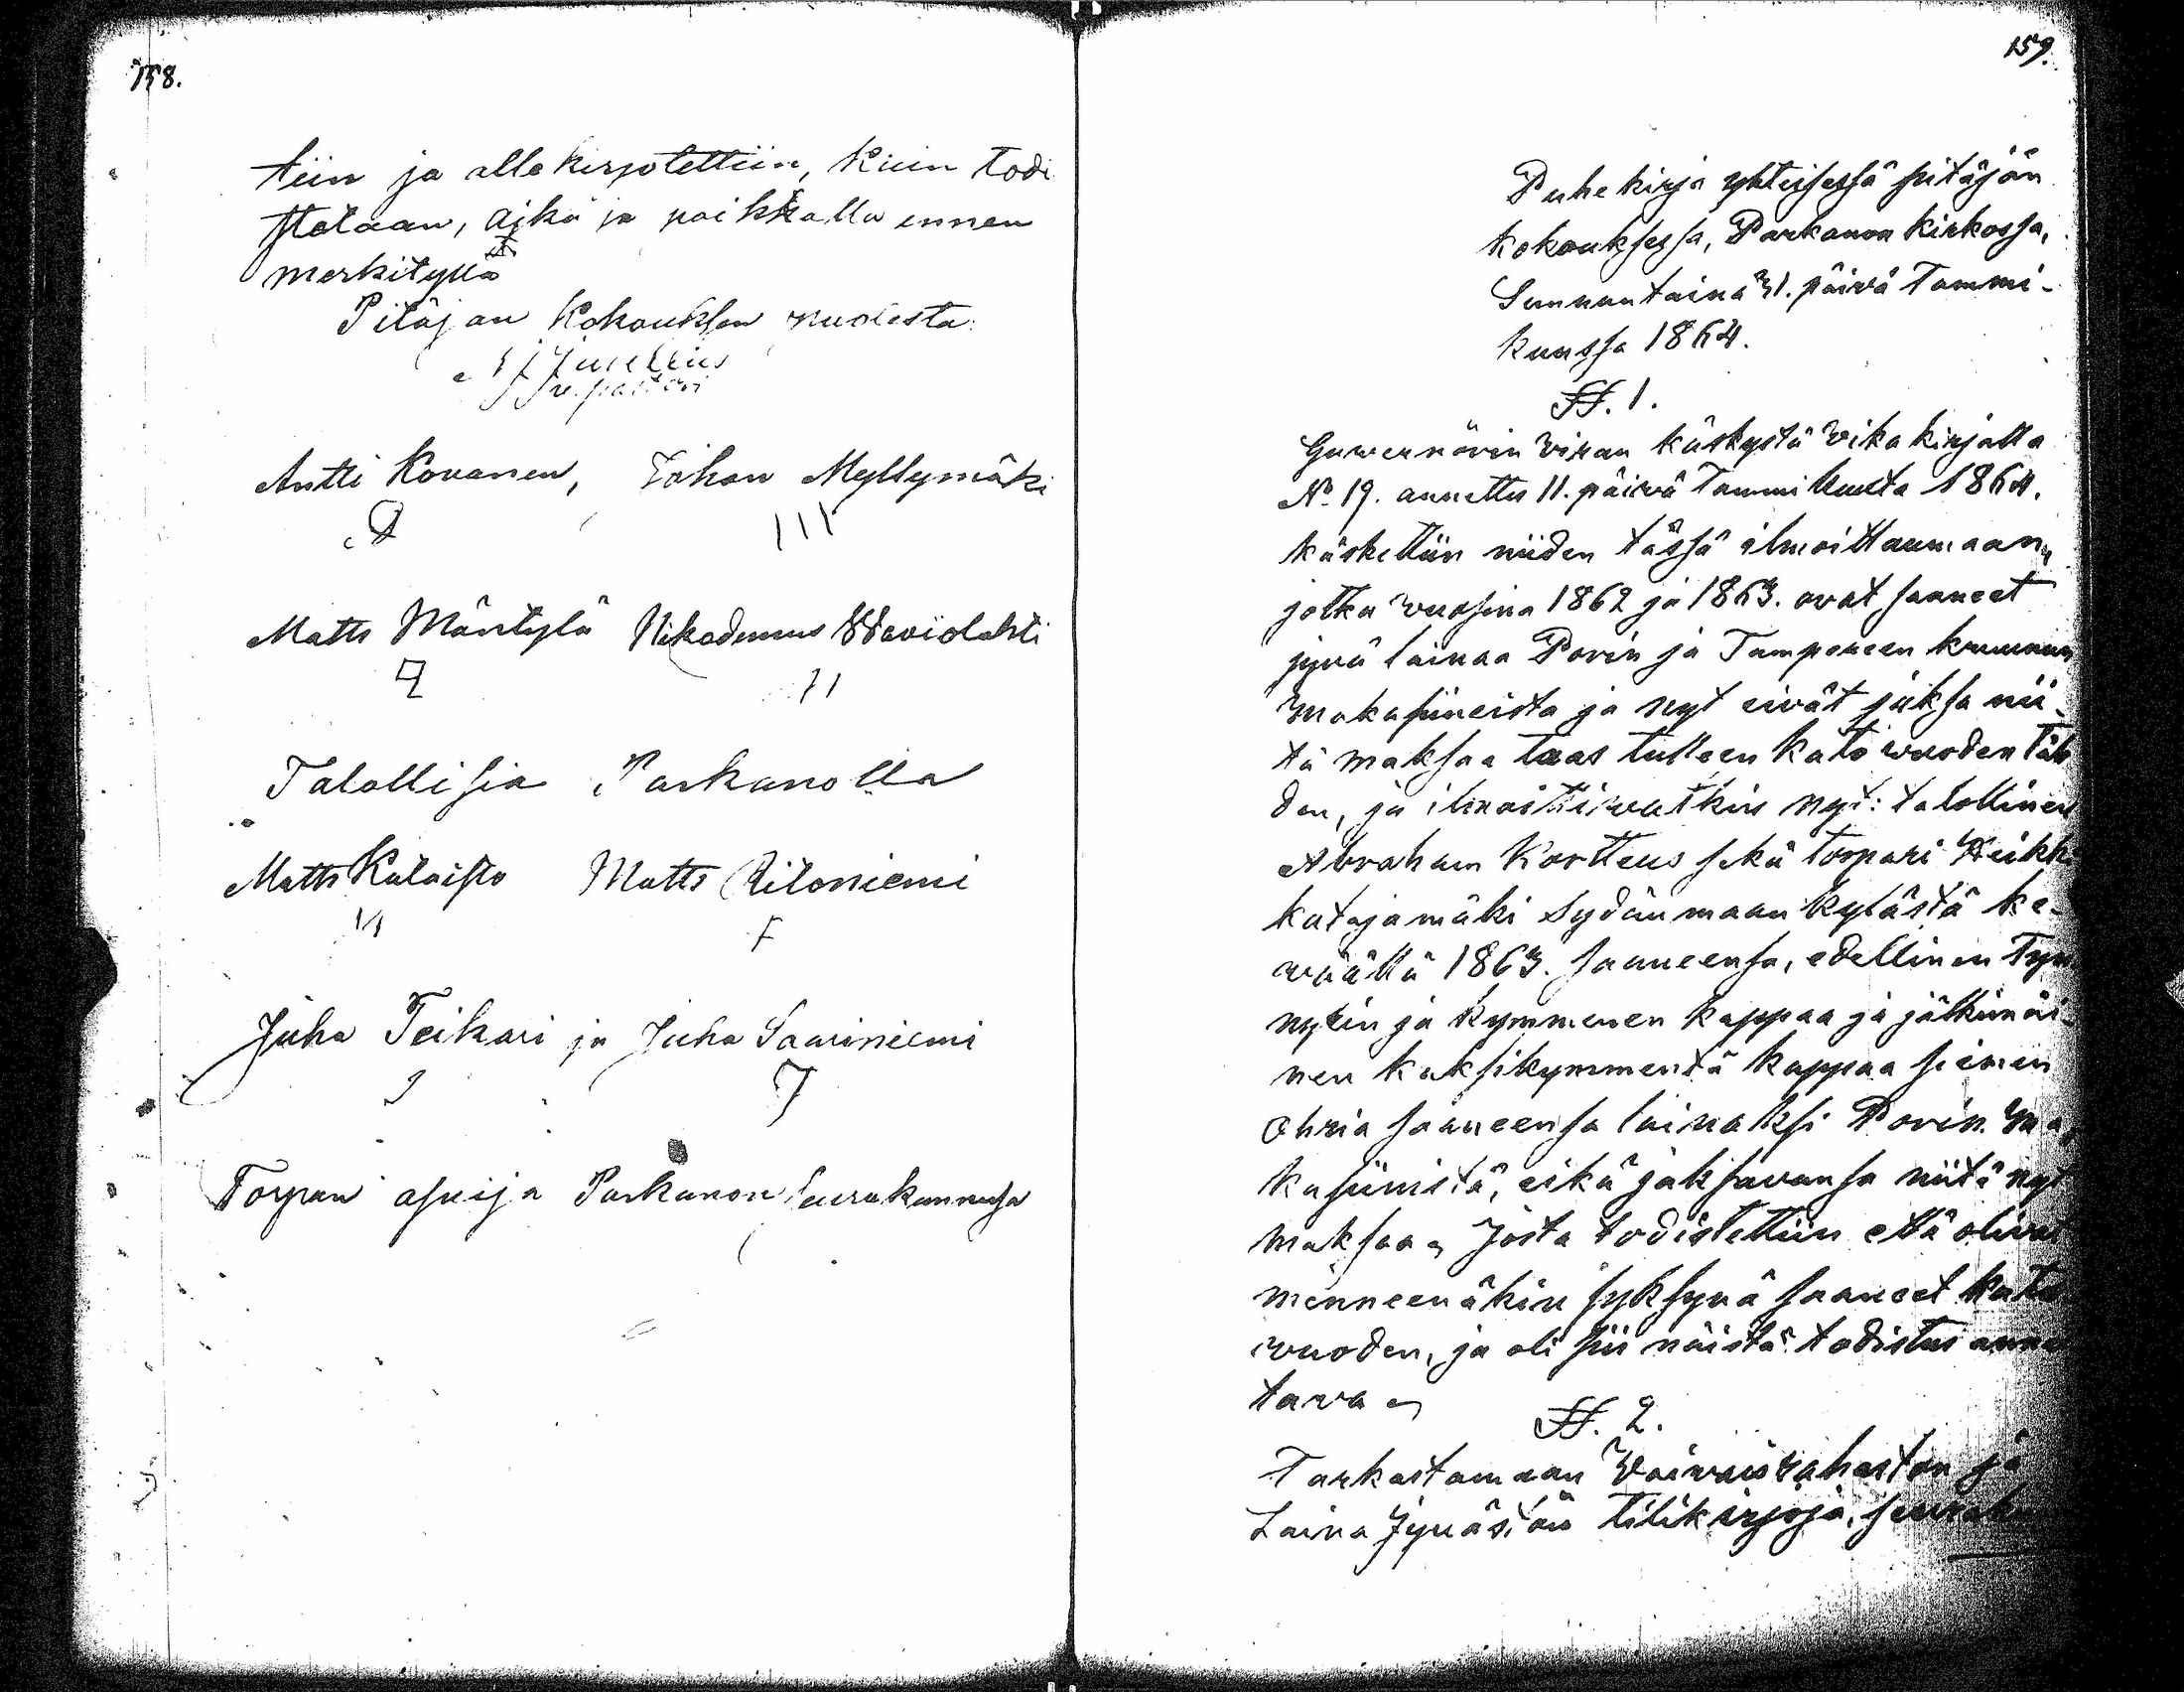 158.
tiin ja allekirjotettiin, kuin todi
stetaan, aika ja paikkalla ennen
merkityllä
Pitäjän Kokouksen puolesta:
Antti Kovanen, Johan Myllymäki
III
Matts Mäntylä Nikodemus Waviolahti
Talollisia Parkanolla
Matts Kalaisto Matts Riitoniemi
Juha Teikari ja Juha Saariniemi
Torpan asuija Parkanon Seurakunnasa
159.
Puhekirja yhteisessä pitäjän
kokouksessa, Parkanon kirkossa,
Sunnuntaina 31. päivä Tammi-
kuussa 1864.
§§. 1.
Guwernörin Wiran käskystä Wika kirjalla
No 19. annettu 11. päivä Tammikuuta 1864.
käskettiin niiden tässä ilmoittaumaan,
jotka wuosina 1862 ja 1863. ovat saaneet
jywä lainaa Porin ja Tampereen kruunun
makasiineista ja nyt eivät jaksa nii-
tä maksaa taas tulleen kato wuoden täh
den, ja ilmoittiwatkin nyt: talollinen
Abraham Kortteus sekä torpari Heikki
Katajamäki Sydänmaan kylästä ke-
wäällä 1863. saaneensa, edellinen Tyn
nyrin ja kymmenen kappaa ja jälkimäi-
nen kaksikymmentä kappaa siemen
Ohria saaneensa lainaksi Porin ma
kasiinistä, eikä jaksavansa niitä nyt
maksaa, Josta todistettiin että olivat
menneenäkin syksynä saaneet kato
wuoden, ja oli siis näistä todistus annet
tava
§§. 2.
Tarkastamaan Waiwaisrahaston ja
Laina Jywästön tilikirjoja,